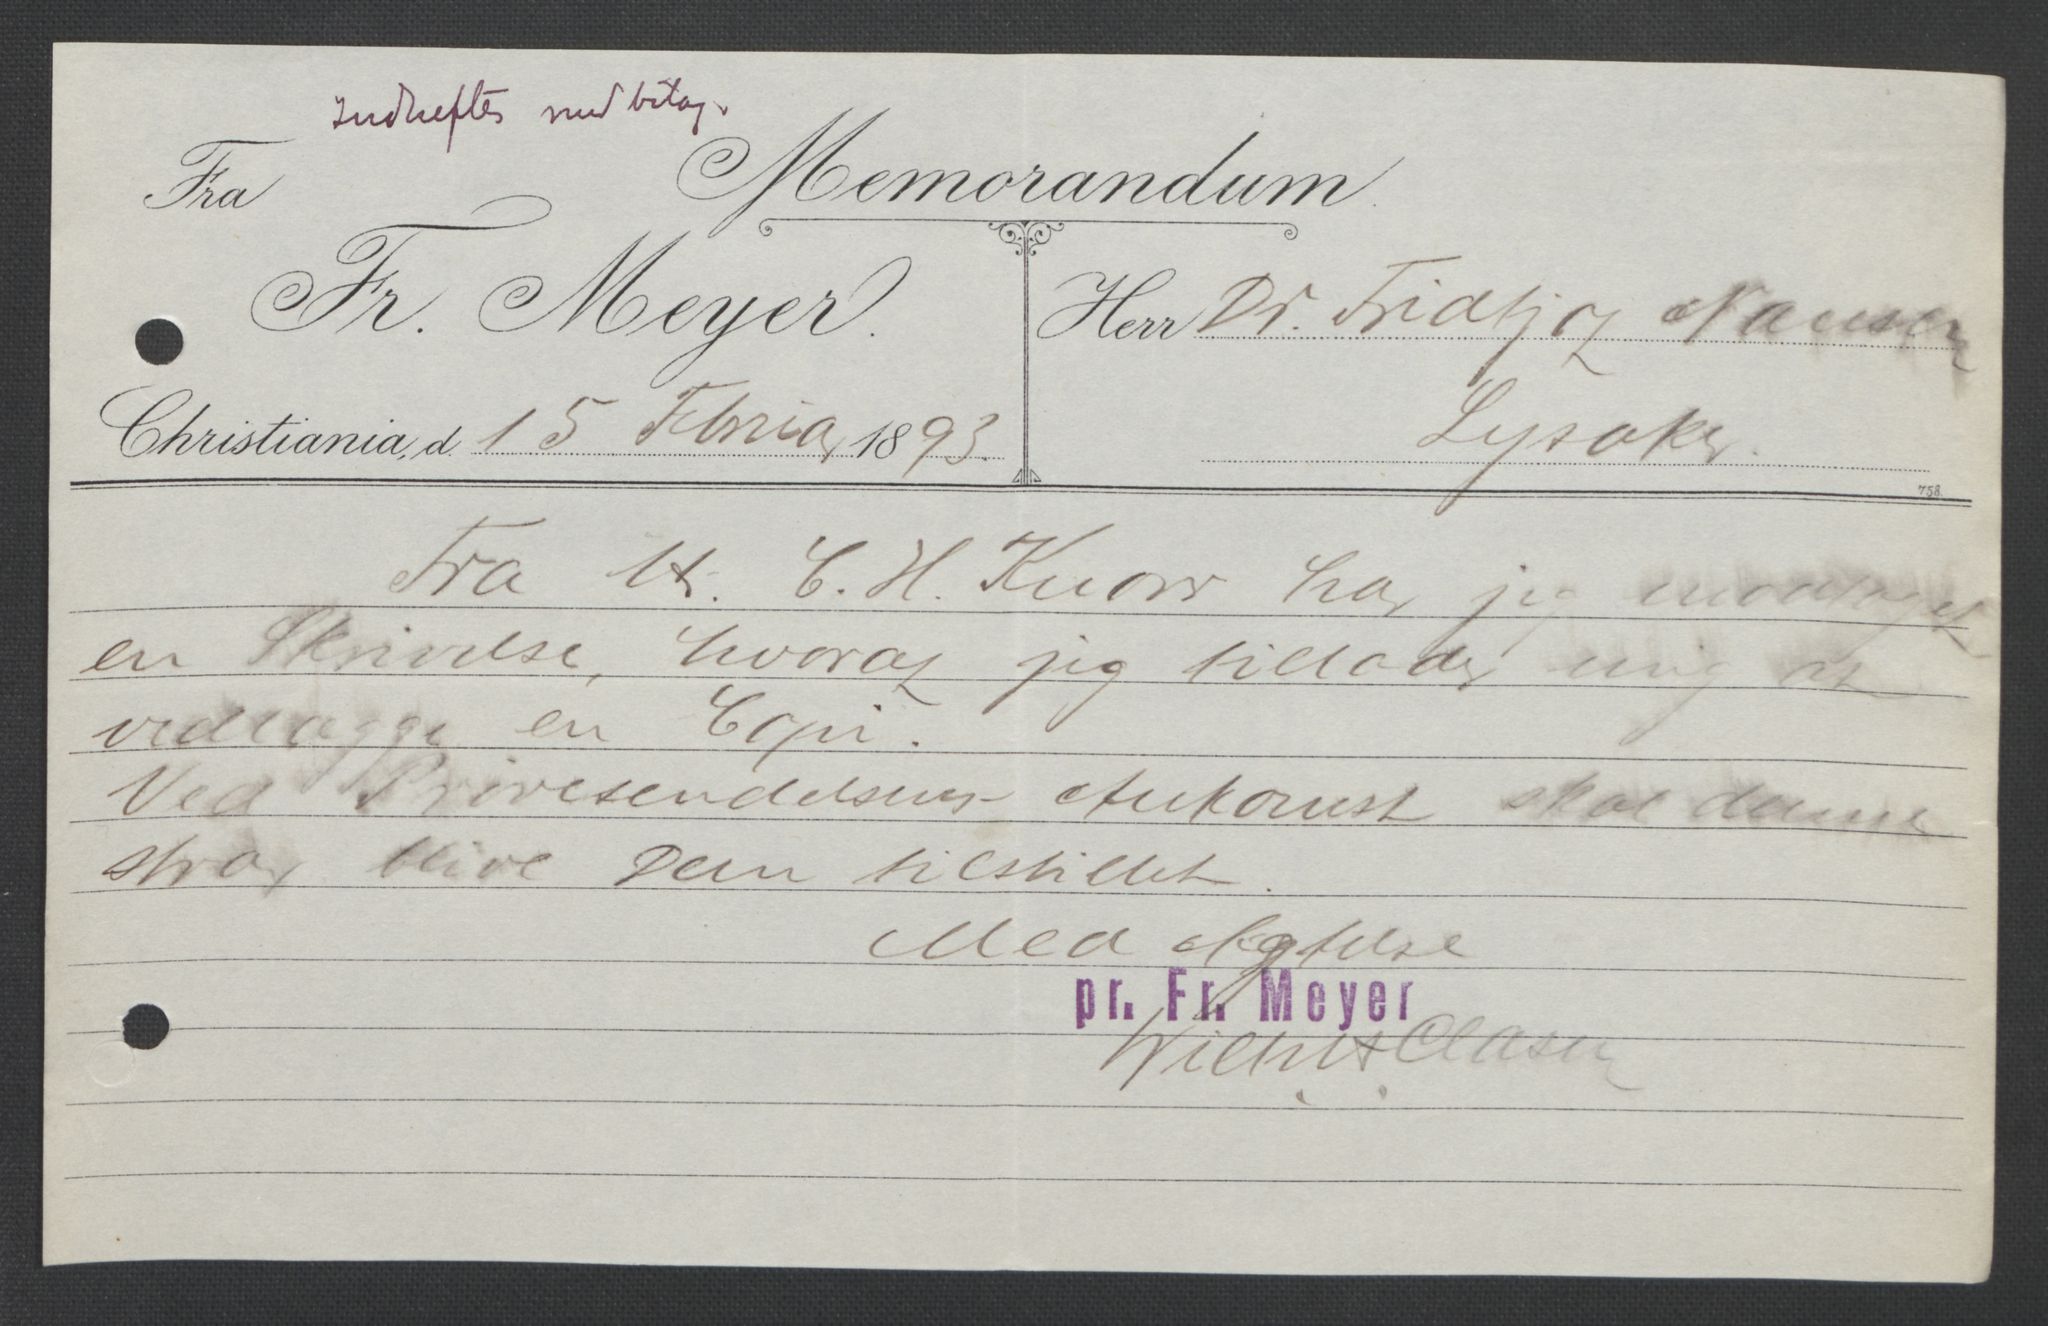 Indheftes med bilag.
Memorandum.
Fra
Fr. Meyer.
Herr Dr. Fridtjof Nansen
Lysaker.
Christiania, d. 15 Februar 1893.
758.
Fra Hr. C. H. Knorr har jeg modtaget
en Skrivelse, hvoraf jeg tillader mig at
vedlægge en Copi.
Ved Prøvesendelsens Ankomst skal denne
strax blive Dem tilstillet.
Med Agtelse
pr. Fr. Meyer
Clasen